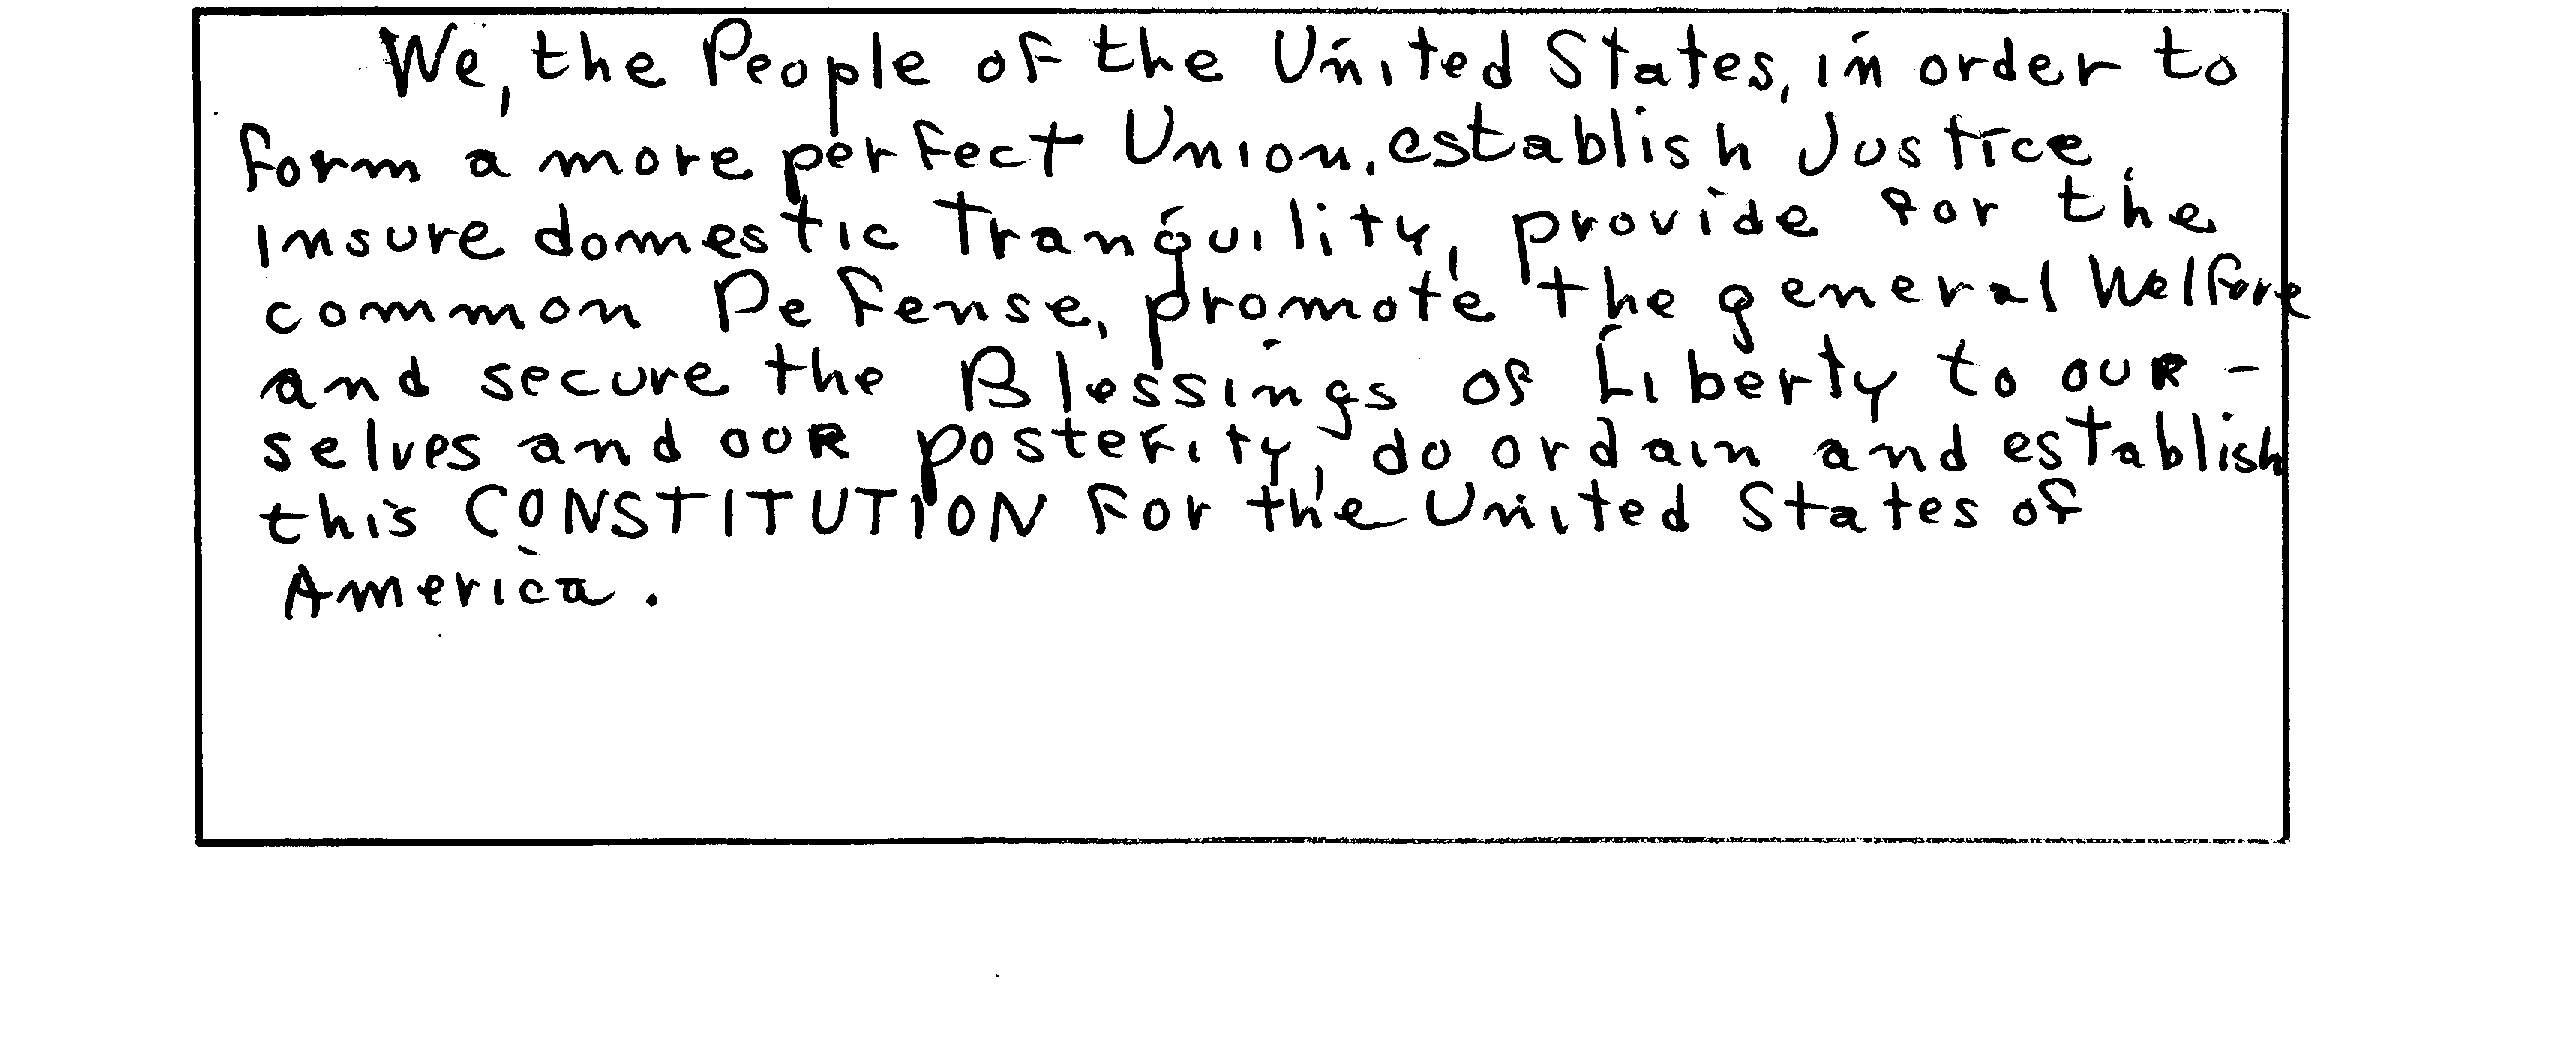 We, the People of the United States, in order to
form a more perfect Union, establish Justice,
insure domestic Tranquility, provide for the
common Defense, promote the general Welfare
and secure the Blessings of Liberty to our -
selves and our posterity, do ordain and establish
this CONSTITUTION for the United States of
America.